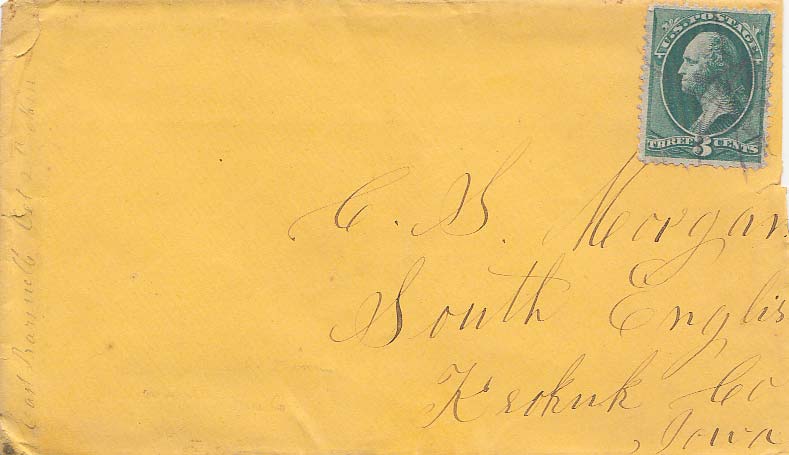 U.S. POSTAGE
THREE 3 CENTS
C. S. Morgan
South Englis
Keokuk Co
Iowa